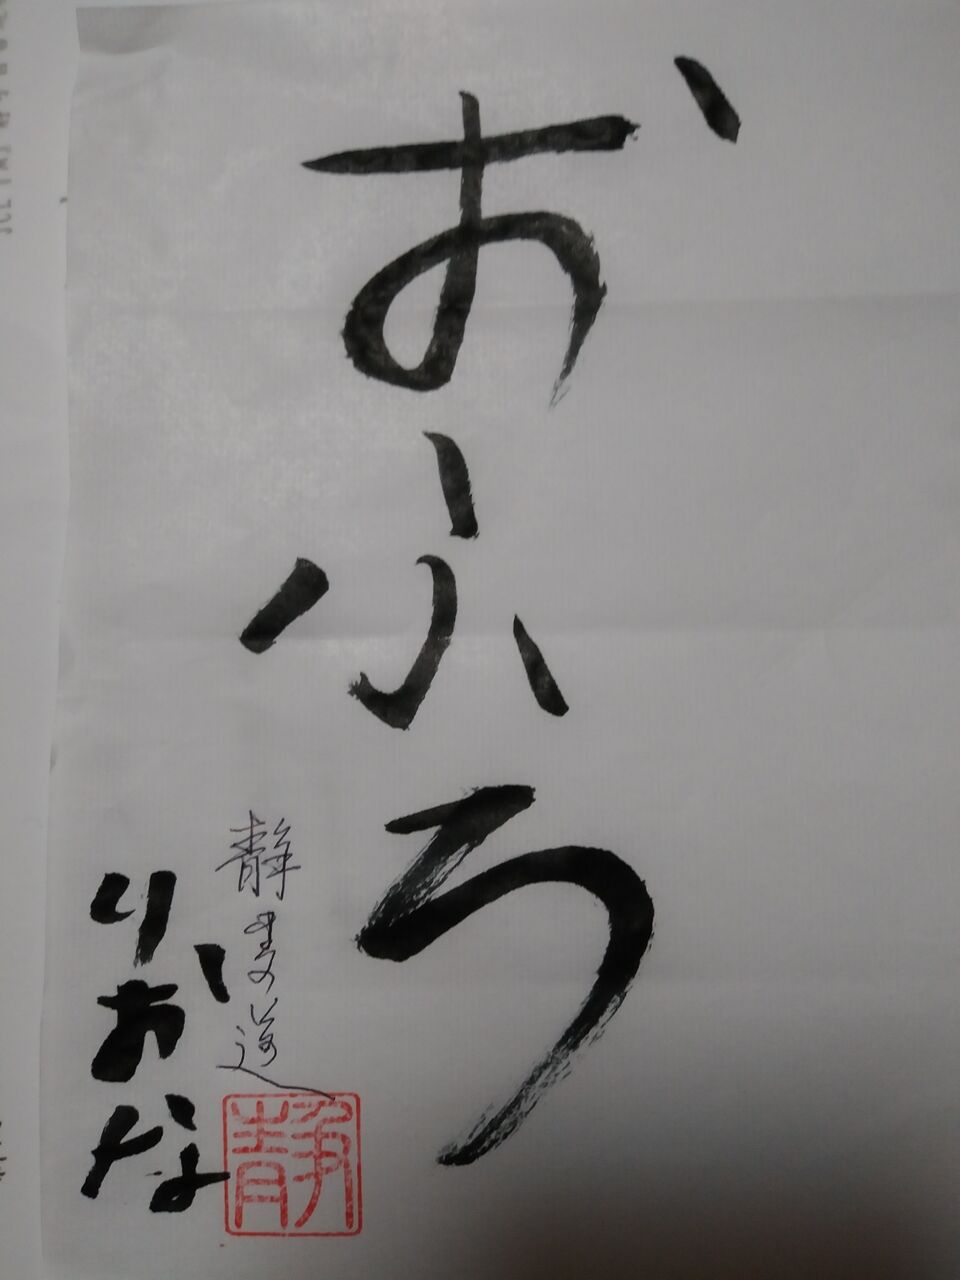 おふろ
静
りおな
静